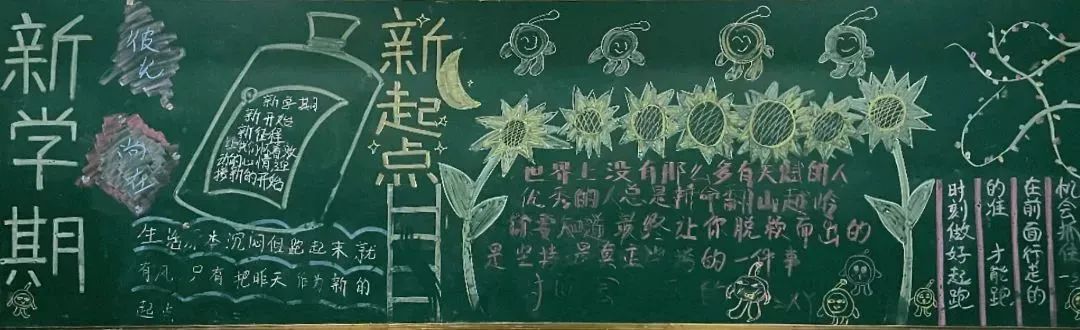 新学期
彼尤
向在
新学期
新开始
新征程
让我们怀着激
动的心情迎
接新的开始
生 本沉闷但跑起来就
有风 只有把昨天作为新的
起点
新起点
世界上没有那么多有天赋的人
优秀的人总是拼命翻山越岭
你要知道 最终让你脱颖而出的
是坚持是真正 的一件事
的
机会抓住
在前面行走的
的准 才能跑
时刻做好起跑